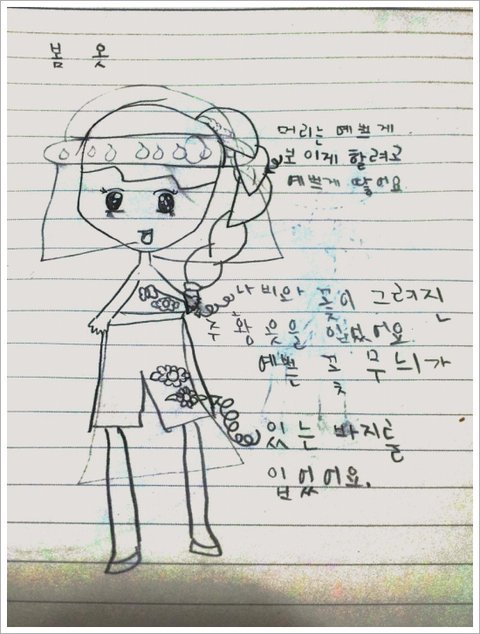 봄 옷
머리는 예쁘게
보이게 할려고
예쁘게 땋어요
나비와 꽃이 그려진
주황 옷을 입었어요
예쁜 꽃 무늬가
있는 바지를
입었어요.